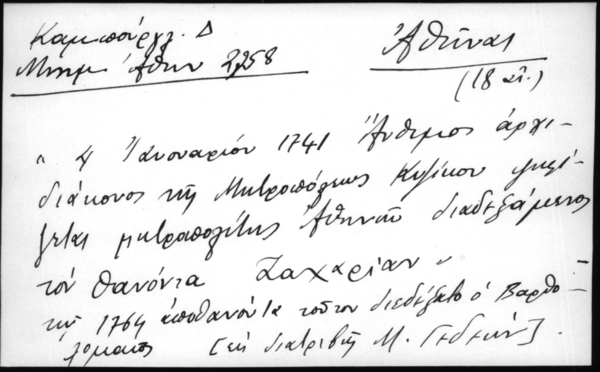 Καμπούργλ. Δ
Μνημ. Ἀθην 2,258
Ἀθῆναι
(18 αἰ.)
"4 Ἰανουαρίου 1741 Ἄνθιμος ἀρχι-
διάκονος τῆς Μητροπόλεως Κυζίκου ψηφί-
ζεται μητροπολίτης Ἀθηνῶν διαδεξάμενος
τόν θανόντα Ζαχαρίαν"
τῷ 1764 ἀποθανόντα τοῦτον διεδέξατο ὁ Βαρθο-
λομαῖος [ἐκ διατριβῆς Μ. Γεδεών].